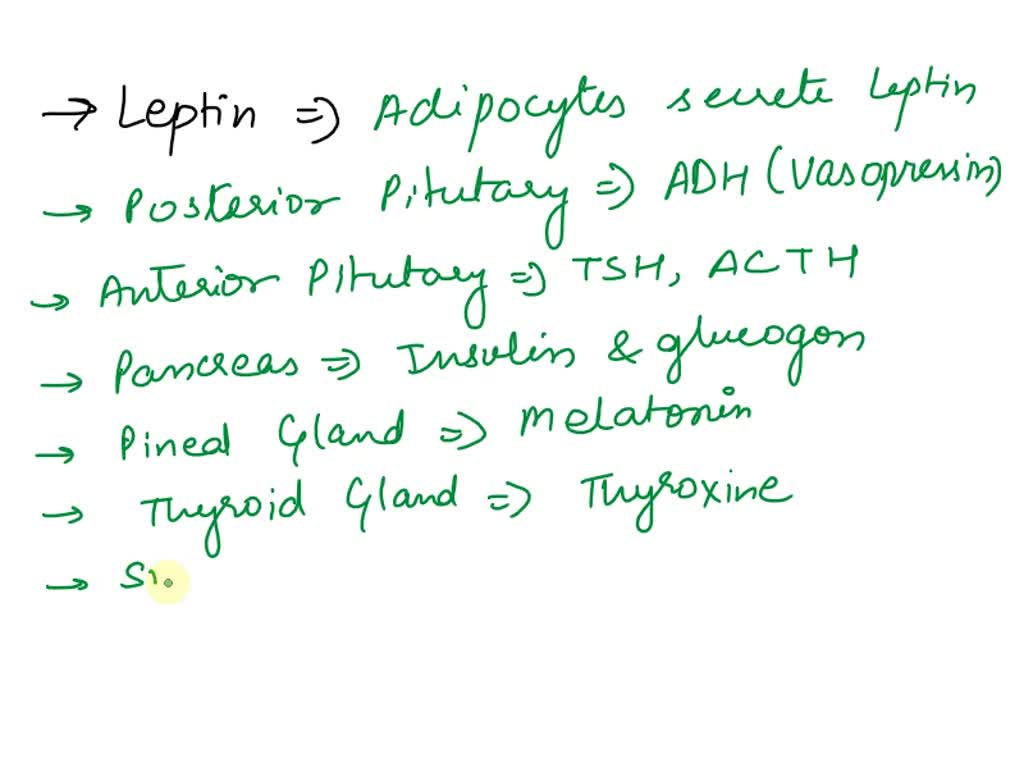 → Leptin ⇒ Adipocytes secrete Leptin
→ Posterior Pitutary ⇒ ADH (Vasopressin)
→ Anterior Pitutary ⇒ TSH, ACTH
→ Pancreas ⇒ Insulin & glucogon
→ Pineal Gland ⇒ Melatonin
→ Thyroid Gland ⇒ Thyroxine
→